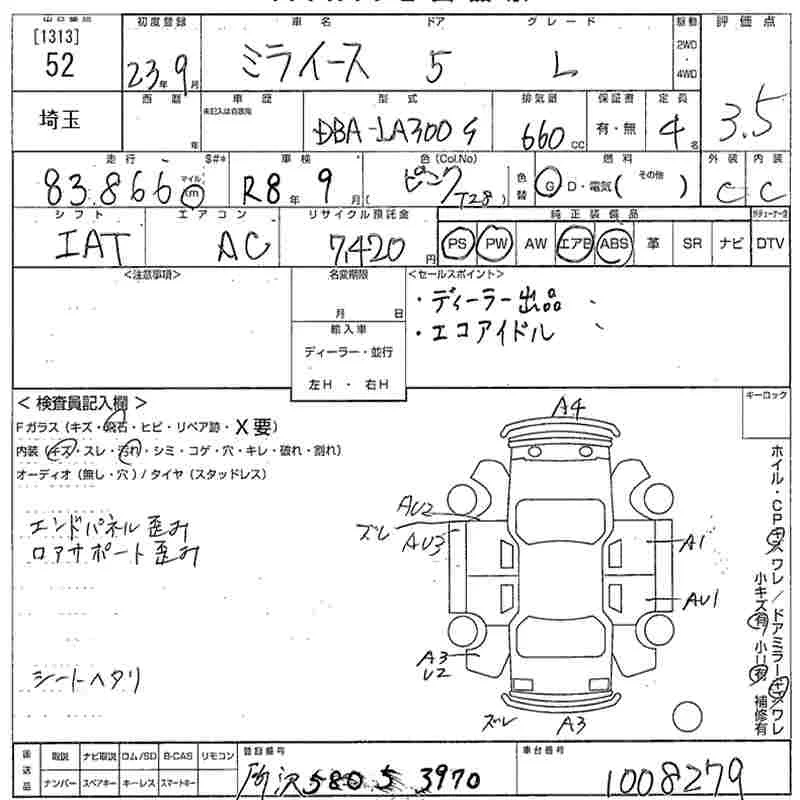 [1313]
52
埼玉
初度登録
23年 9月
車名
ミライース
ドア
5
グレード
L
駆動
2WD
・
4WD
評価点
3.5
西暦
年
車歴
未記入は自家用
型式
DBA-LA300S
排気量
660 CC
保証書
有・無
定員
4名
走行
83,866
マイル
km
$#*
車検
R8年 9月
色(Col.No)
ピンク
(T28)
色替
燃料
G D・電気( その他 )
外装
C
内装
C
シフト
IAT
エアコン
AC
リサイクル預託金
7,420円
純正装備品
PS PW AW エアB ABS 革 SR ナビ DTV
<注意事項>
名変期限
月 日
輸入車
ディーラー・並行
左H ・ 右H
<セールスポイント>
・ディーラー出品
・エコアイドル
< 検査員記入欄 >
Fガラス (キズ・飛石・ヒビ・リペア跡・X要)
内装 (キズ・スレ・汚れ・シミ・コゲ・穴・キレ・破れ・割れ)
オーディオ (無し・穴) / タイヤ (スタッドレス)
エンドパネル歪み
ロアサポート歪み
シートヘタリ
A4
AU2
ズレ
AU3
A1
AU1
A3
U2
ズレ
A3
キーロック
ホイル・CPキズワレ/ドアミラーキズワレ
小キズ有 小凹有 補修有
後送品
取説 ナビ取説 ロム/SD B-CAS リモコン
ナンバー スペアキー キーレス スマートキー
登録番号
所沢 580 3970
車台番号
1008279